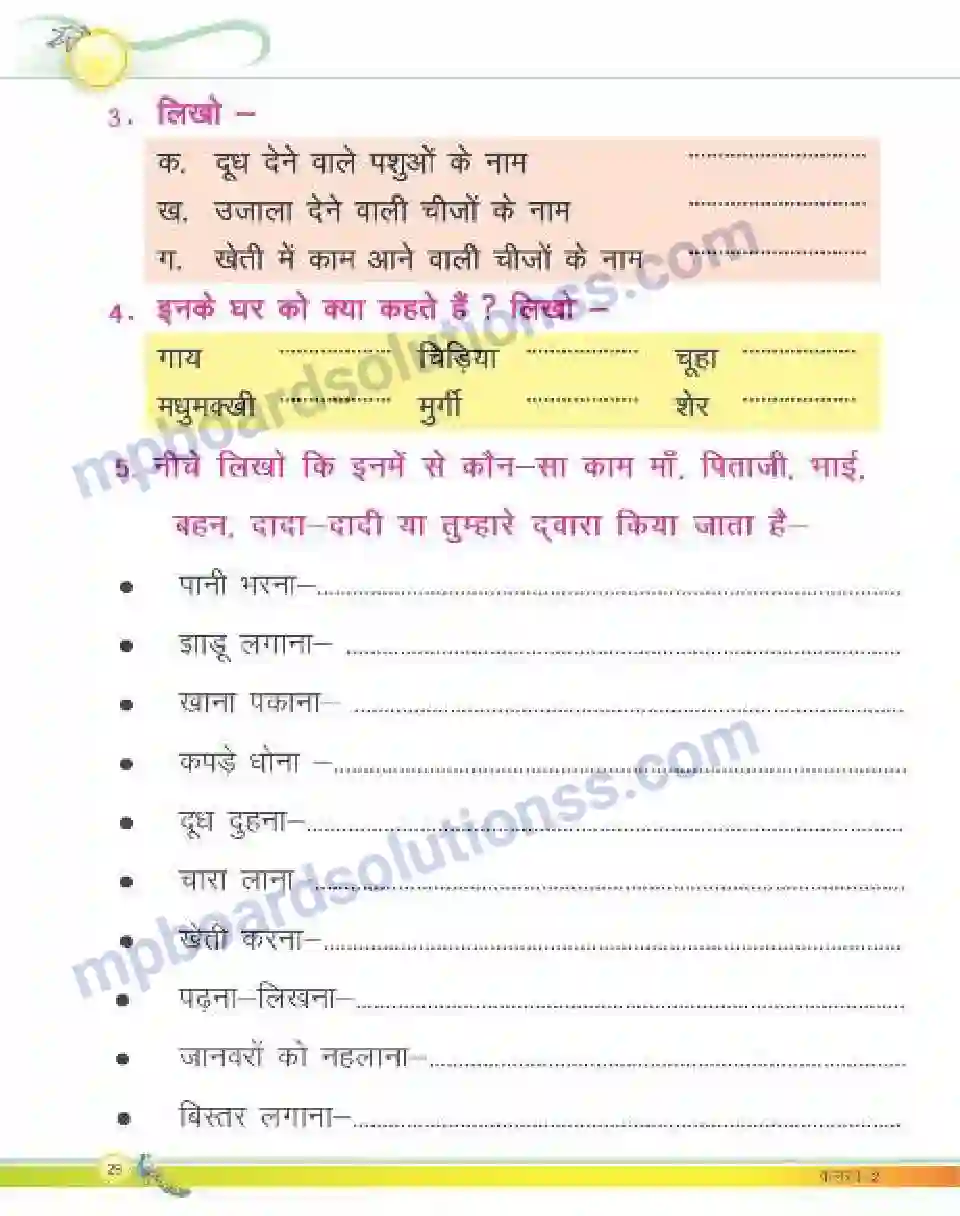 3. लिखो –
क. दूध देने वाले पशुओं के नाम ..............................
ख. उजाला देने वाली चीजों के नाम ..............................
ग. खेती में काम आने वाली चीजों के नाम ..............................
4. इनके घर को क्या कहते हैं ? लिखो –
गाय .................... चिड़िया .................... चूहा ....................
मधुमक्खी .................... मुर्गी .................... शेर ....................
5. नीचे लिखो कि इनमें से कौन–सा काम माँ, पिताजी, भाई,
बहन, दादा–दादी या तुम्हारे द्वारा किया जाता है–
● पानी भरना–..............................
● झाडू लगाना– ..............................
● खाना पकाना– ..............................
● कपड़े धोना –..............................
● दूध दुहना–..............................
● चारा लाना ..............................
● खेती करना–..............................
● पढ़ना–लिखना–..............................
● जानवरों को नहलाना–..............................
● बिस्तर लगाना–..............................
mpboardsolutionss.com
mpboardsolutionss.com